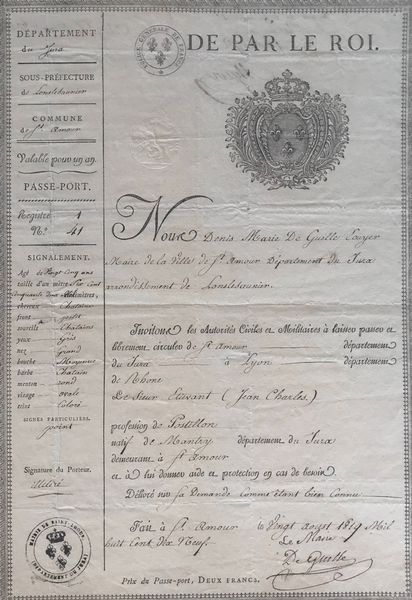 DÉPARTEMENT
du Jura
SOUS-PRÉFECTURE
de Lonslesaunier
COMMUNE
de St. Amour
Valable pour un an.
PASSE-PORT.
Registre 1
N.º 41
SIGNALEMENT.
Agé de Vingt Cinq ans
taille d'un mètre Six Cent
Cinquante deux Millimètres,
cheveux Chatains
front petit
sourcils Chatains
yeux Gris
nez Grand
bouche Moyenne
barbe Chatain
menton rond
visage ovale
teint Coloré
SIGNES PARTICULIERS.
point
Signature du Porteur.
illétré
MAIRIE DE SAINT-AMOUR
DÉPARTEMENT DU JURA
DE PAR LE ROI.
Nous Denis Marie De Guille Ecuyer
Maire de la Ville de St. Amour Département du Jura
arrondissement de Lonslesaunier.
Invitons les Autorités Civiles et Militaires à laisser passer et
librement circuler de St Amour département
du Jura à Lyon département
de Rhone
Le Sieur Etievant (Jean Charles)
profession de Postillon
natif de Mantry département du Jura
demeurant à St Amour
et à lui donner aide et protection en cas de besoin.
Délivré sur sa Demande Comme étant bien Connu
Fait à St. Amour le Vingt aoust 1819 Mil
huit Cent Dix Neuf. Le Maire
De Guille
Prix du Passe-port, DEUX FRANCS.